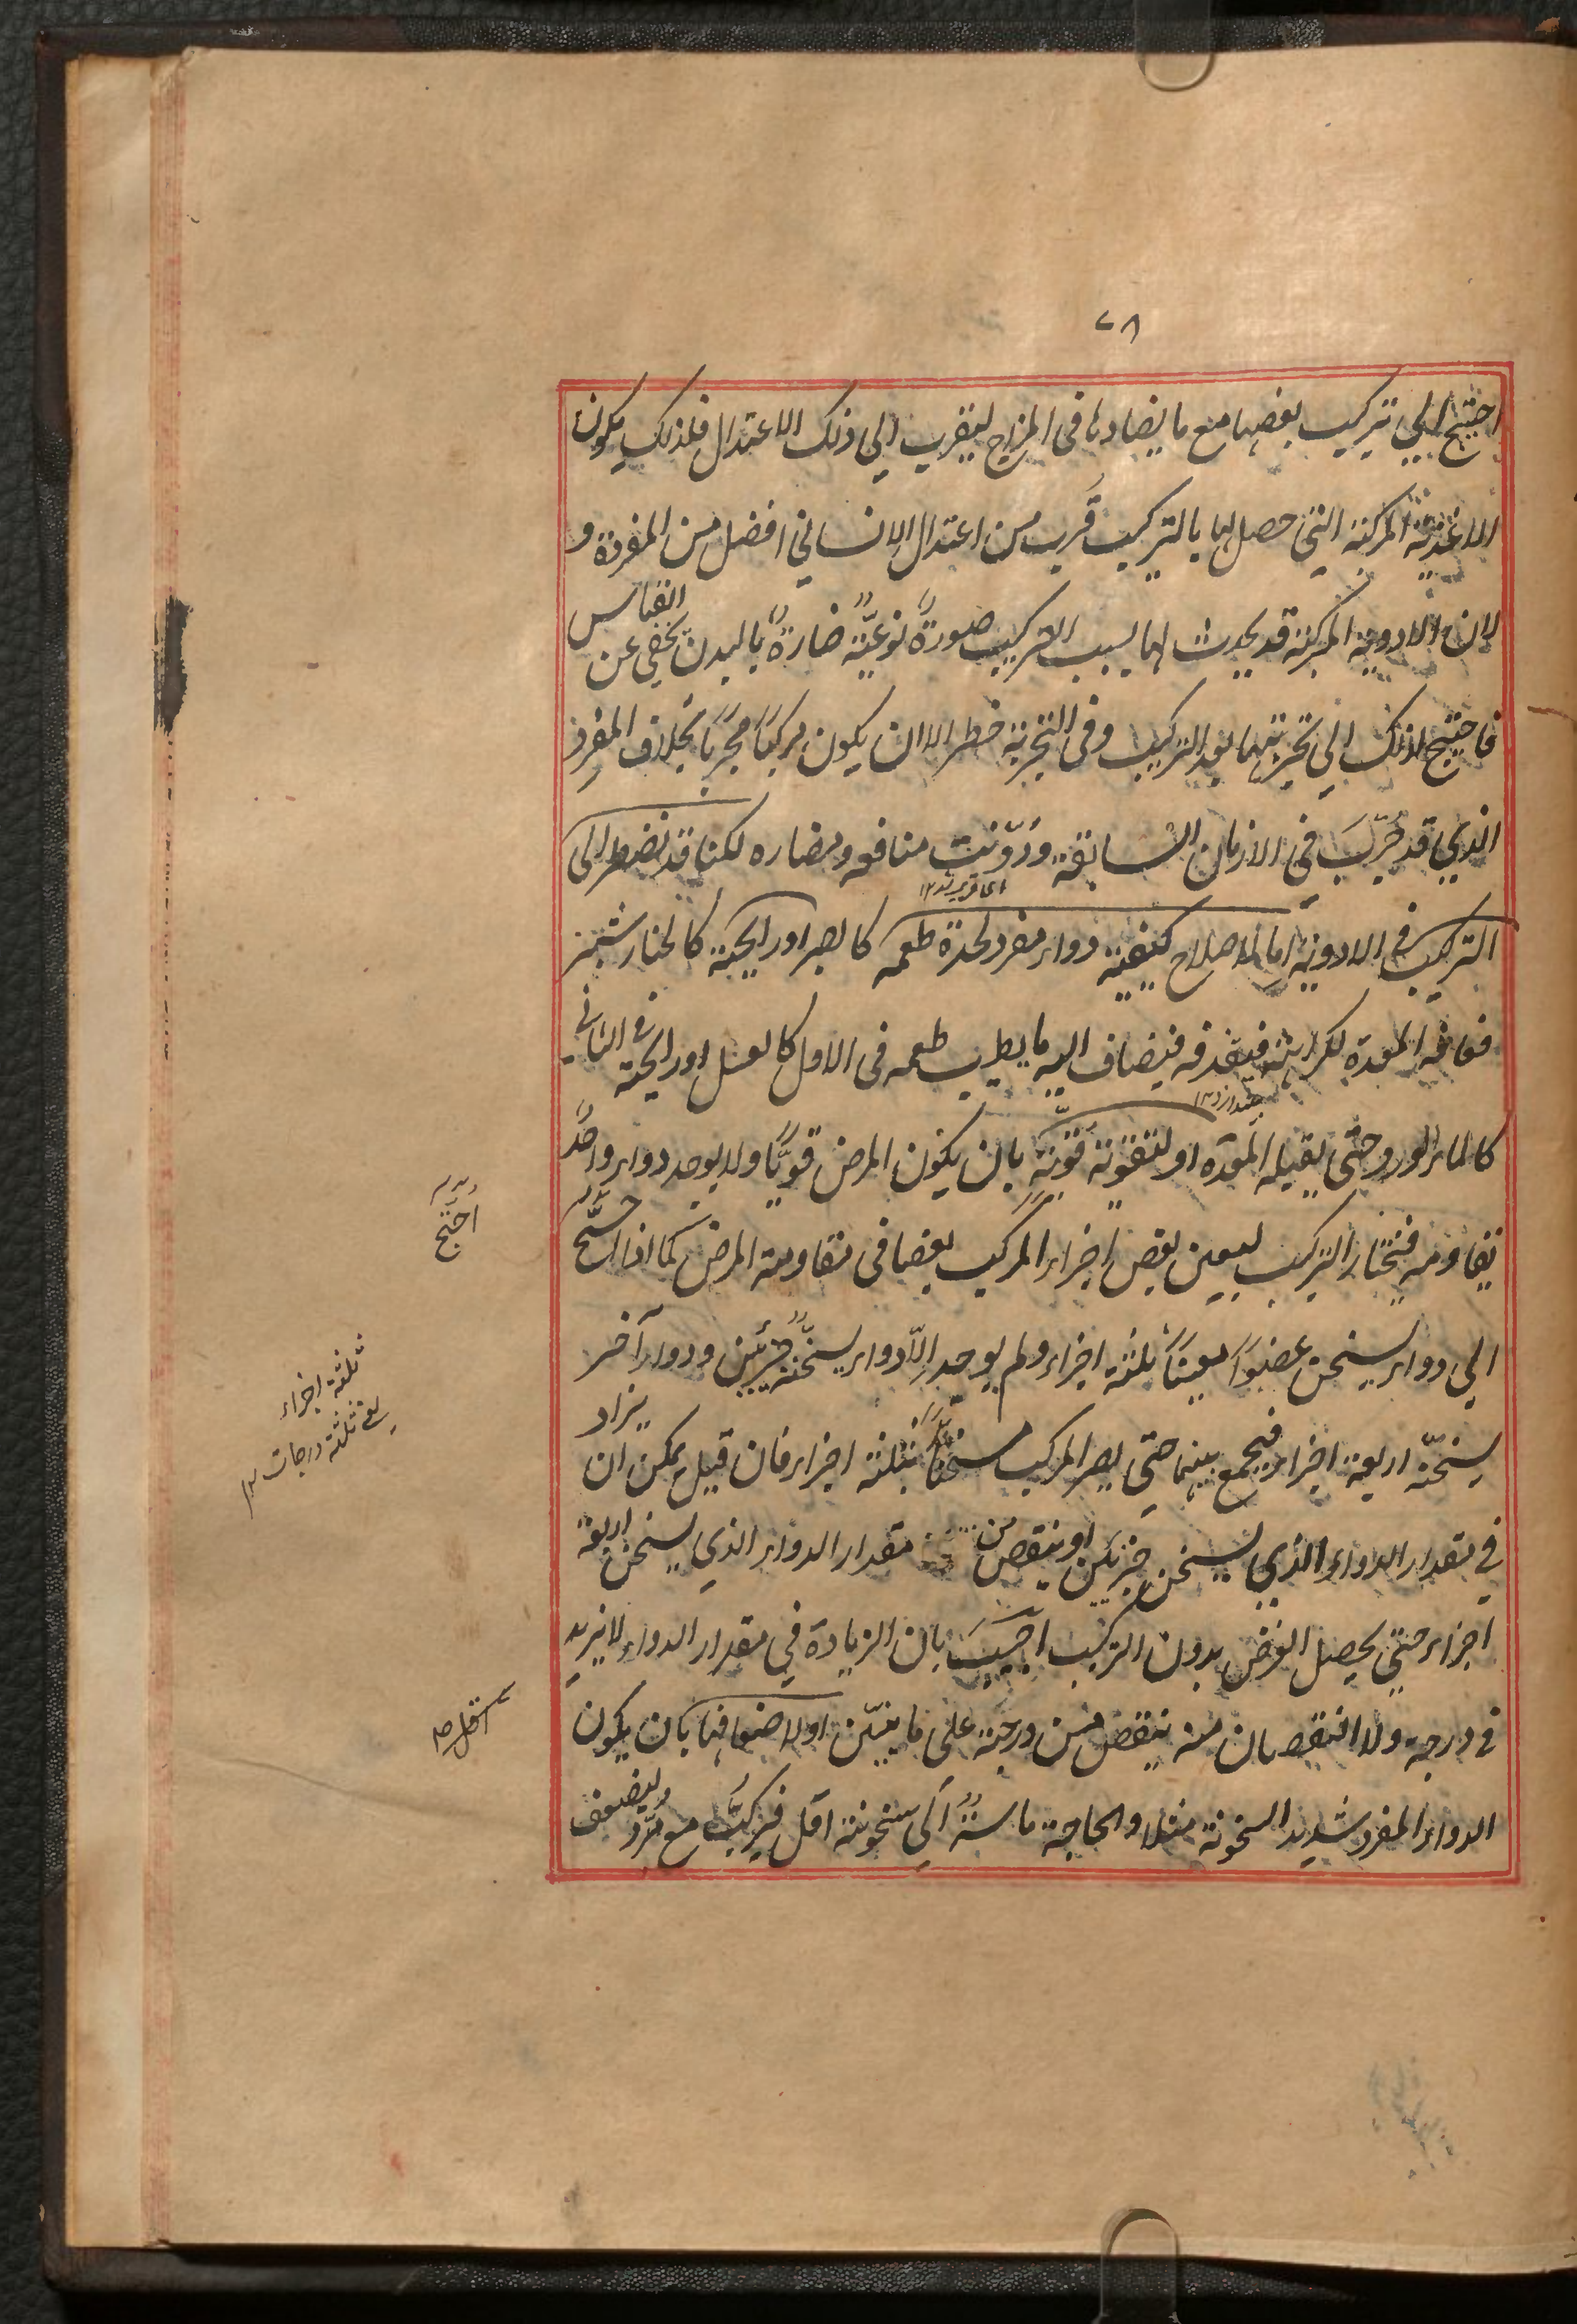 ٧٨
احتيج الي تركيب بعضها مع ما يضادها فى المزاج ليقرب الي ذلك الاعتدال فلذلك يكون
الاغذية المركبة التي حصل لها بالتركيب قرب من اعتدال الانساني افضل من المفردة و
لان الادوية المركبة قد يحدث لها بسبب التركيب صورةً نوعيّةً ضارةً بالبدن يخفى عن القياس
فاحتيج لذلك الي تجربتها بعد التركيب وفى التجربة خطر الا ان يكون مركبًا مجربًا بخلاف المفرد
الذي قد جرّبَ فى الازمان السابقة ودوّنت منافعه ومضاره لكنا قد نضطر الى
التركيب فى الادوية اما لاصلاح كيفية دواء مفرد لحدة طعمه كالصبر او رايحته كالخيار شنبر
فعافه المعدة لكراهته فيقذفه فيضاف اليه ما يطيب طعمه فى الاول كالعسل او رايحته فى الثاني
كالماء الورد حتى يقبله المعدة او لتقوية قوّتهٖ بان يكون المرض قويًّا ولا يوجد دواء واحدٌ
يقاومه فيختار التركيب ليعين بعض اجزاء المركب بعضا فى مقاومة المرض كما اذا احتيج
الي دواء يسخن عضوًا معينًا بثلثة اجزاء ولم يوجد الّا دواء يسخّنه جزئين ودواء آخر
يسخّنه اربعة اجزاء فيجمع بينهما حتى يصر المركب مسخنًا بثلثة اجزاء فان قيل يمكن ان يزاد
في مقدار الدواء الذي يسخن جزئين او ينقص من مقدار الدواء الذي يسخن اربعة
اجزاء حتى يحصل الغرض بدون التركيب اجيبَ بان الزيادة في مقدار الدواء لا يزيد
فى درجة ولا النقصان منه ينقص من درجة على ما يتبيّن او لاضعافها بان يكون
الدواء المفرد شديد السخونة مثلا والحاجة ماسةٌ الي سخونة اقل فيركبُ مع مبرّد ليضعف
احتيج
ثلثة اجزاء
يعني ثلثة درجات ١٢